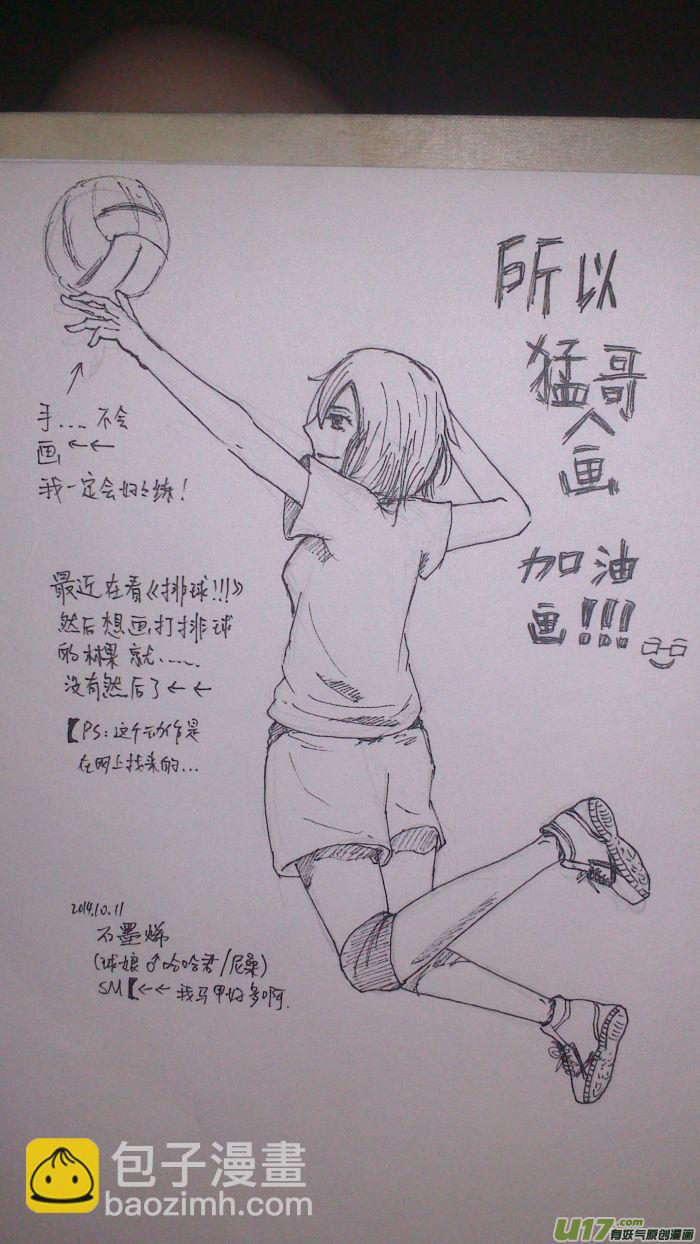 所以
猛哥
人画
加油
画!!!
手... 不会
画←←
我一定会好好练!
最近在看《排球!!!》
然后想画打排球
的林果就......
没有然后了←←
【PS:这个动作是
在网上找来的...
2014.10.11
石墨烯
(球娘♂哈哈君/尼桑)
SM【←←我马甲好多啊.
包子漫畫
baozimh.com
U17.com
有妖气原创漫画